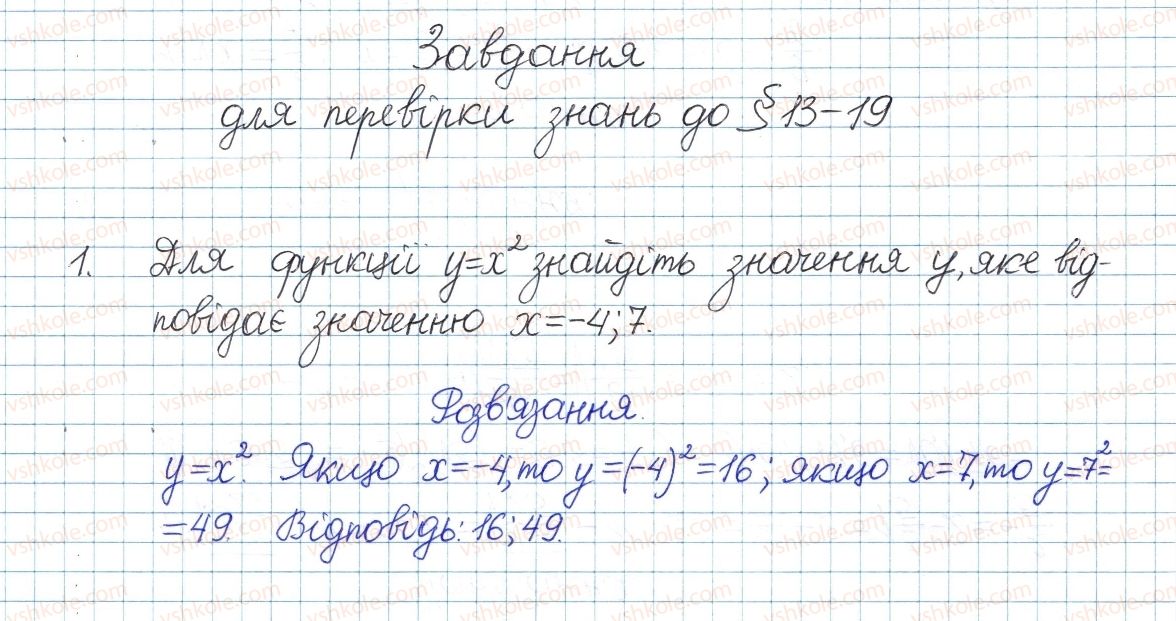 Завдання
для перевірки знань до § 13-19
1. Для функції y=x² знайдіть значення y, яке від-
повідає значенню x=-4; 7.
Розв'язання.
y=x². Якщо x=-4, то y=(-4)²=16; якщо x=7, то y=7²=
=49. Відповідь: 16; 49.
vshkole.com